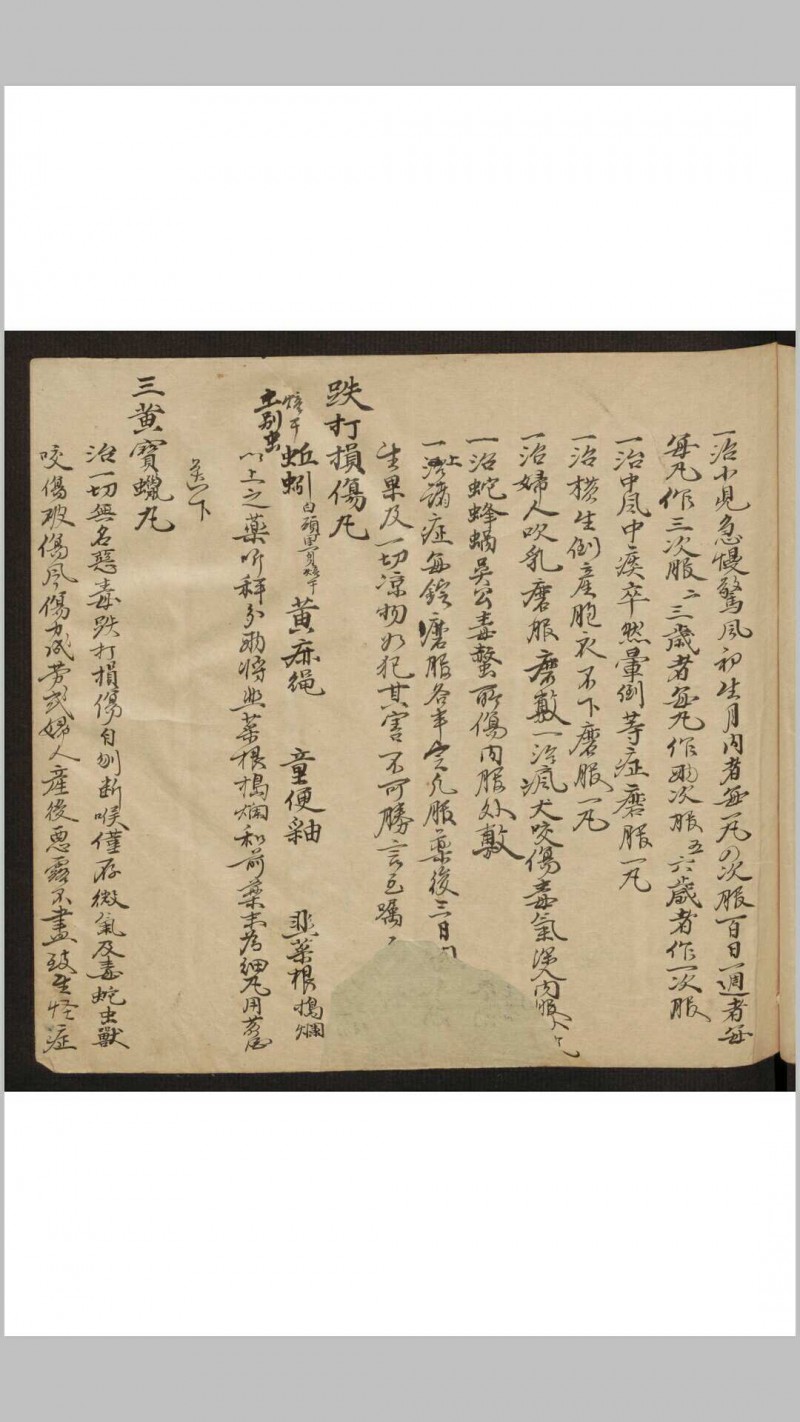 一治小児急慢驚風初生月内者每一丸の次服百日一週者每
每丸作三次服二三歳者每丸作両次服五六歳者作一次服
一治中風中痰卒然暈倒等症磨服一丸
一治横生倒産胞衣不下磨服一丸
一治婦人吹乳磨服磨敷一治瘋犬咬傷毒氣深入内服
一治蛇蜂蝎吴公毒螫所傷内服外敷
一治上諸症每錠磨服各半空凢服藥後三日
生果及一切凉物如犯其害不可勝言至囑
跌打損傷丸
焙干
土别虫
蚯蚓白頭
黄麻绳
童便釉
韭菜根搗爛
以上之藥听秤分両將韭菜根搗爛和前藥末為細丸用
送下
三黄寳蠟丸
治一切無名惡毒跌打損傷自刎断喉僅存微氣及毒蛇虫獸
咬傷破傷風傷力成劳或婦人産後惡露不盡致生怪症